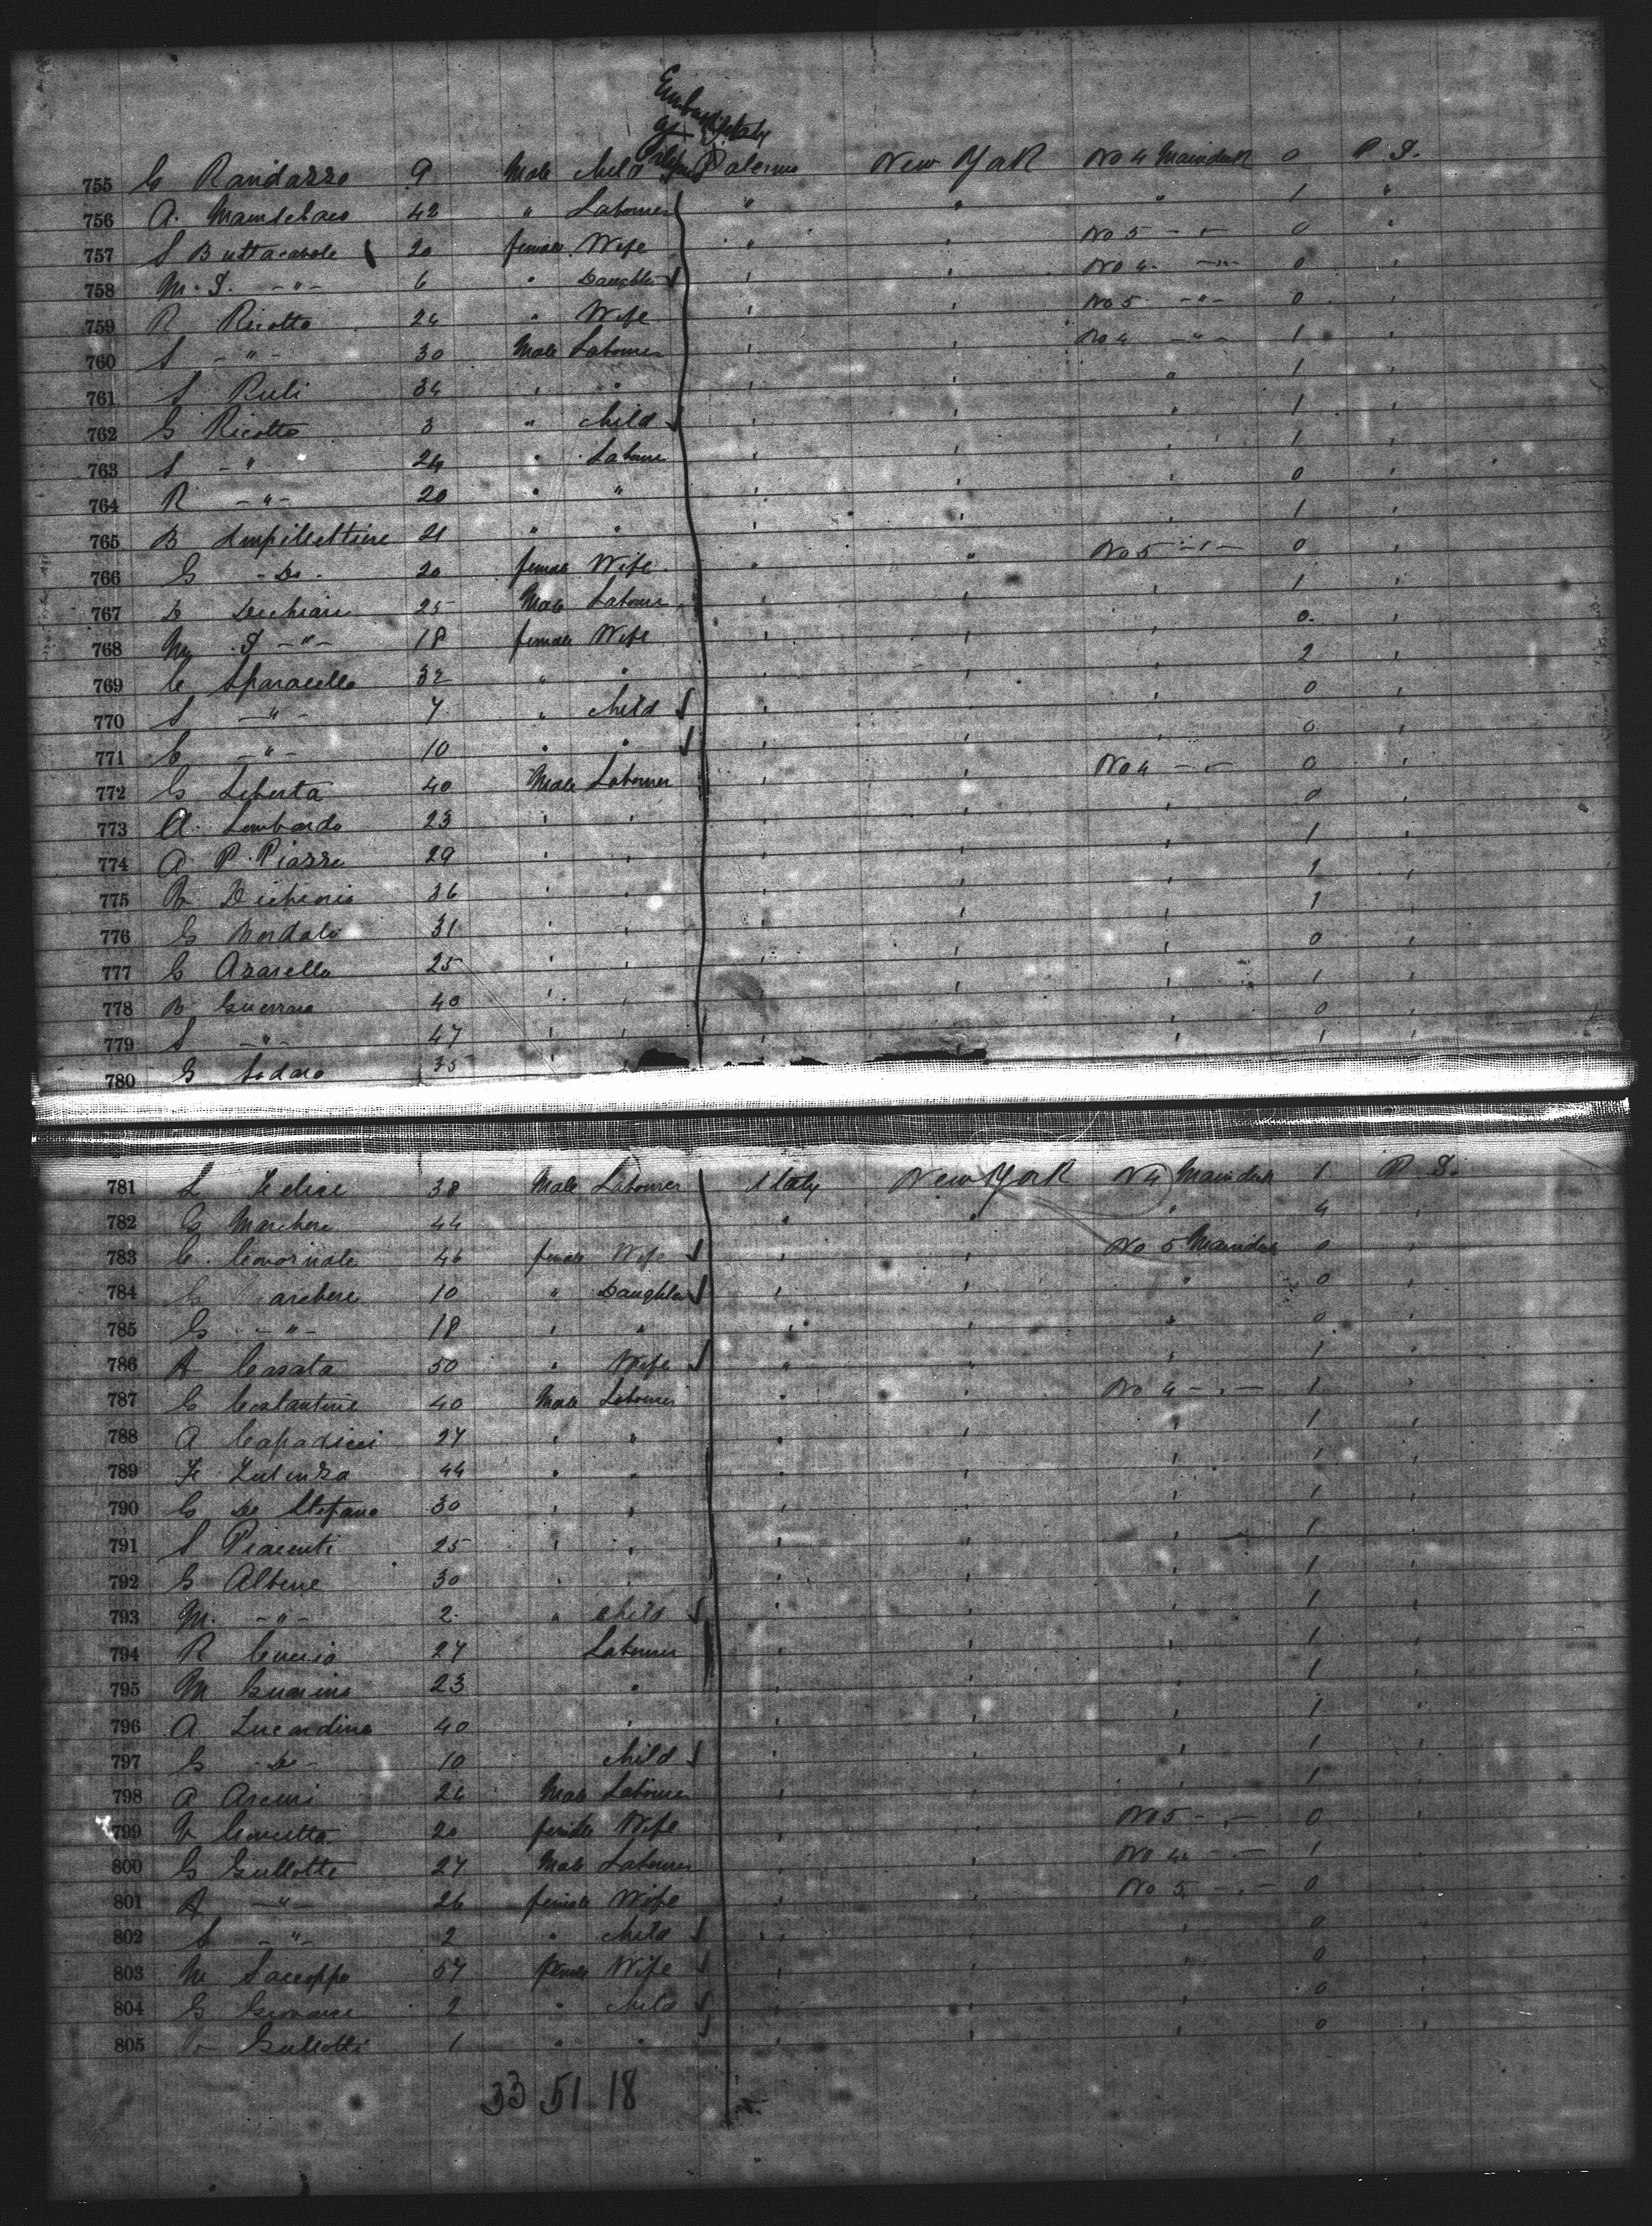 Italy
755 G Randazzo 9 Male child Palermo New York No 4 Maindeck 0 P. S.
756 A. 42 " Labourer " " " 1 "
757 S Buttacavole 20 female Wife " " No 5 - " - 0 "
758 M. S. - " - 6 " Daughter " " No 4. - " - 0 "
759 R Ricotta 24 " Wife " " No 5 - " - 0 "
760 S - " - 30 Male Labourer " " No 4 - " - 1 "
761 S 34 " " " " " 1 "
762 G Ricotta 3 " child " " " 1 "
763 S - " 24 " Labourer " " " 1 "
764 R - " - 20 " " " " 0 "
765 B 21 " " " " " 1
766 G - Do - 20 female Wife " " No 5 - " - 0 "
767 25 Male Labourer " " " 1 "
768 M S - " - 18 female Wife " " " 0.
769 C Sparacello 32 " " " " " 2 "
770 S - " - 7 " child " " " 0 "
771 C - " - 10 " " " " " 0
772 G Liberta 40 Male Labourer " " No 4 - " - 0 "
773 A. Lombardo 23 " " " " " 0 "
774 A P. Piazza 29 " " " " " 1 "
775 36 " " " " " 1 "
776 G 31 " " " " " 1
777 G Azarello 25 " " " " " 0 "
778 B Guerrara 40 " " " " " 1 "
779 S - " - 47 " " " " " 0
780 G Sodaro 35 " " " " " 1 "
781 L Felice 38 Male Labourer Italy New York No 4 Maindeck 1 P. S.
782 G Marchese 44 " " " 4 "
783 C. 46 female Wife " " No 5 Maindeck 0 "
784 10 " Daughter " " " 0 "
785 G - " - 18 " " " " " 0 "
786 A Casata 50 " Wife " " " 1 "
787 G Costantine 40 Male Labourer " " No 4 - " - 1 "
788 A 27 " " " " " 1 "
789 44 " " " " " 1 "
790 G De Stefano 30 " " " " " 1 "
791 S Piacenti 25 " " " " " 1 "
792 G Albene 30 " " " " " 1 "
793 M. - " - 2 " child " " " 1 "
794 R 27 Labourer " " " 1 "
795 M Guarino 23 " " " " 1
796 A Lucardino 40 " " " " 1 "
797 G - Do - 10 child " " " 1 "
798 A 24 Male Labourer " " " 1 "
799 Concetta 20 female Wife " " No 5 - " - 0 "
800 G Gullotti 27 Male Labourer " " No 4 - " - 1 "
801 A - " - 26 female Wife " " No 5 - " - 0
802 S - " - 2 " child " " " 0 "
803 M Saccoppo 57 female Wife " " " 0 "
804 G 2 " child " " " 0 "
805 Gullotti 1 " " " " " 0 "
33 51 18